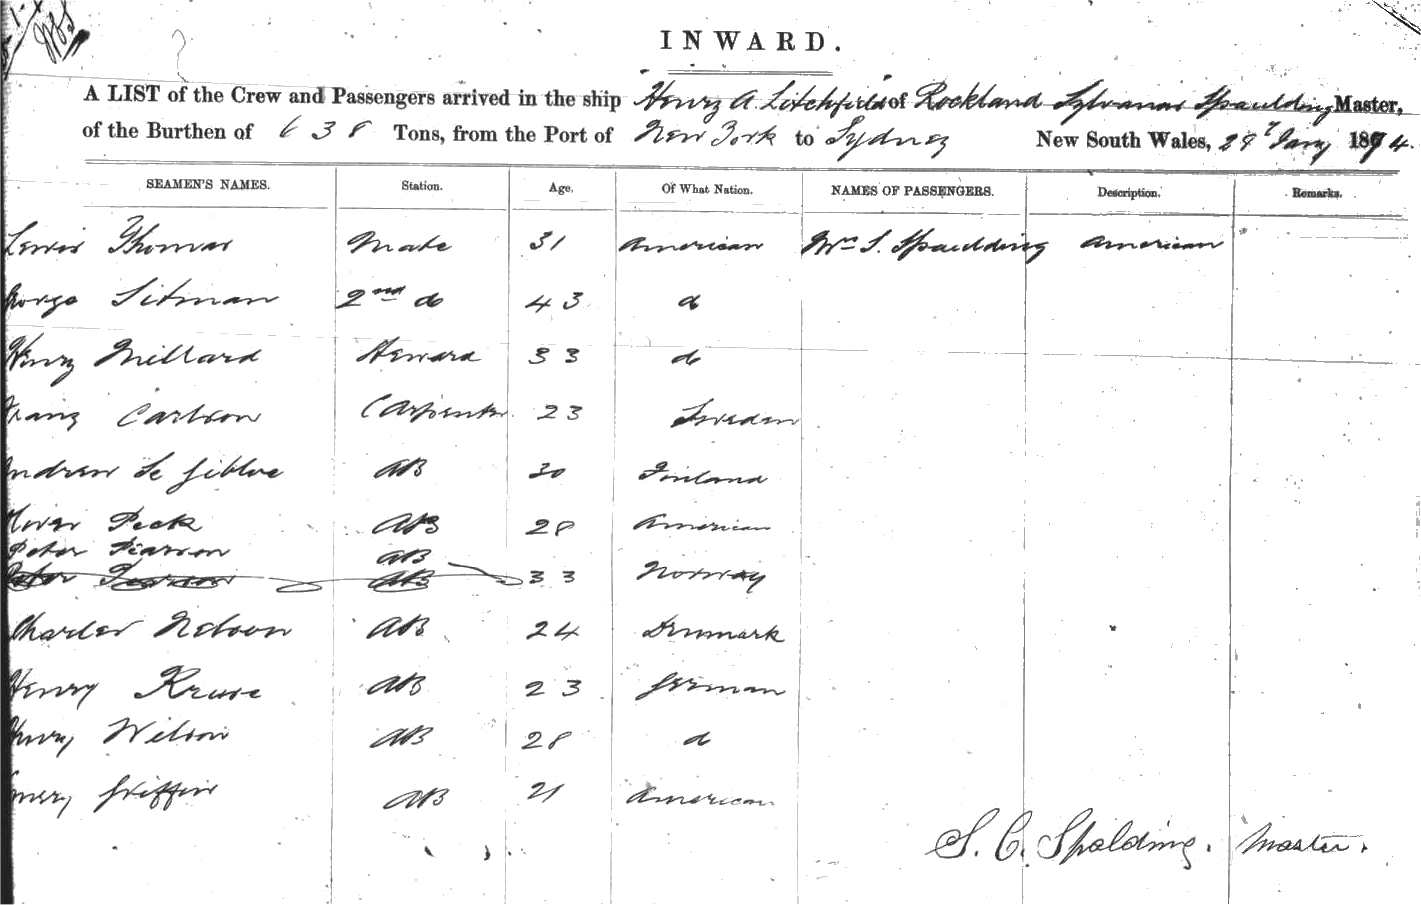 INWARD.
A LIST of the Crew and Passengers arrived in the ship Henry A. Litchfield of Rockland Sylvanus Spaulding Master,
of the Burthen of 638 Tons, from the Port of New York to Sydney New South Wales, 29th Jany 1874.
SEAMEN'S NAMES. Station. Age. Of What Nation. NAMES OF PASSENGERS. Description. Remarks.
Lewis Thomas Mate 31 American Mrs S. Spaulding American
George Sitman 2nd do 43 do
Henry Millard Steward 33 do
Franz Carlson Carpenter 23 Sweden
Andrew AB 30 Finland
Oliver Peck AB 28 American
Peter Pearson AB
Peter Pearson AB 33 Norway
Charles Nelson AB 24 Denmark
Henry Kruse AB 23 German
Henry Wilson AB 28 do
Emery Griffin AB 21 American
S. C. Spalding. Master.